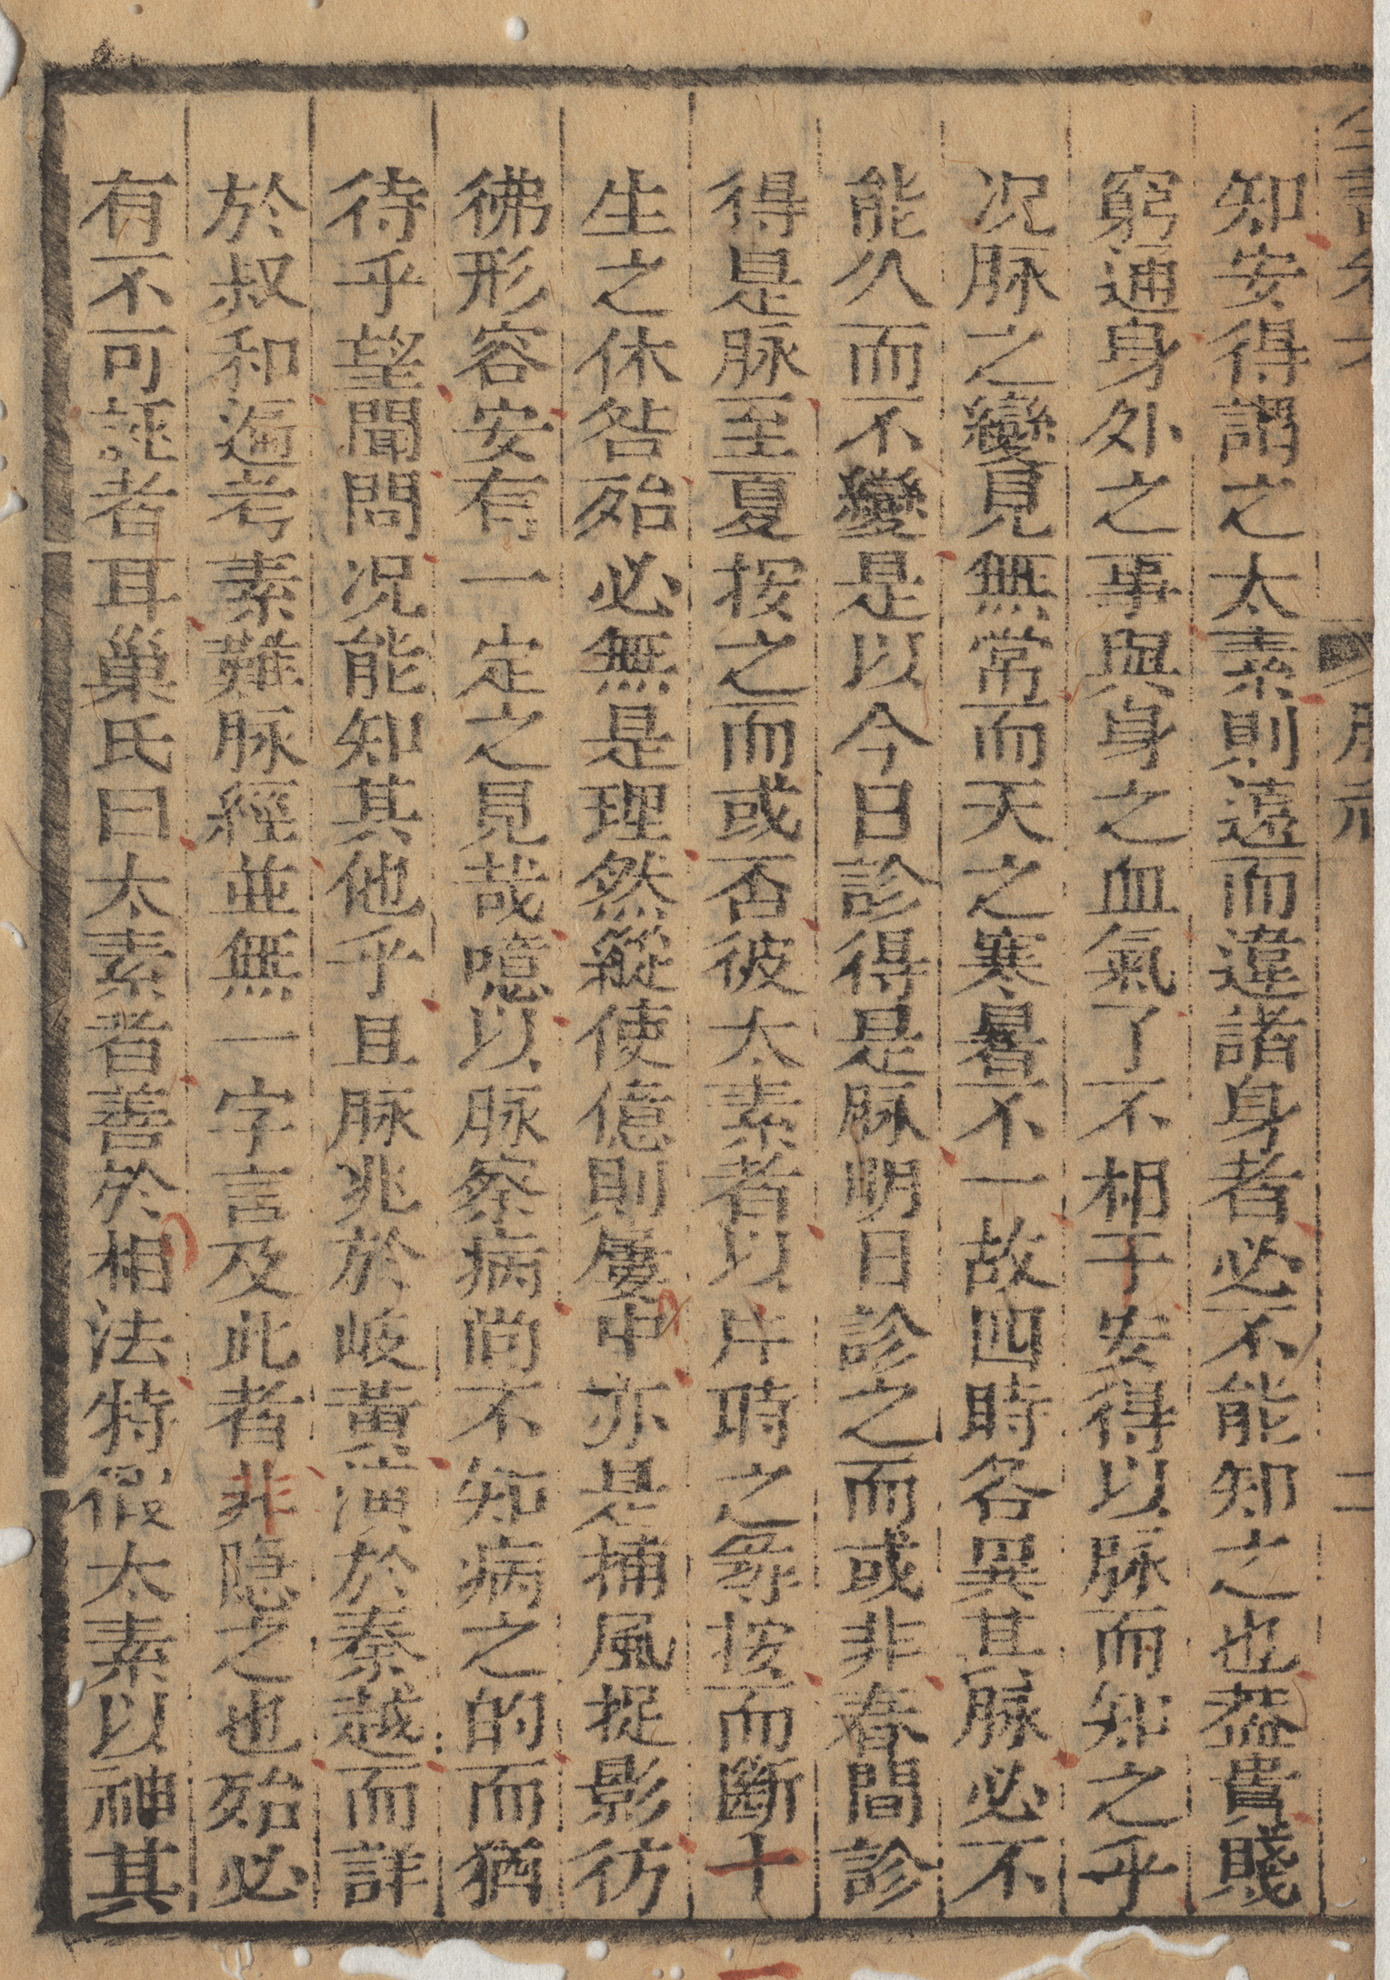 知安得謂之太素則遠而違諸身者必不能知之也葢貴賤
窮通身外之事與身之血氣了不相干安得以脉而知之乎
况脉之變見無常而天之寒暑不一故四時各異其脉必不
能久而不變是以今日診得是脉明日診之而或非春間診
得是脉至夏按之而或否彼太素者以片時之𠉀按而斷十
生之休咎殆必無是理然縱使億則屢中亦是捕風捉影彷
彿形容安有一定之見哉噫以脉察病尚不知病之的而猶
待乎望聞問况能知其他乎且脉兆於岐黃演於秦越而詳
於叔和遍考素難脉經並無一字言及此者非隐之也殆必
有不可誣者耳巢氏曰太素者善於相法特假太素以神其